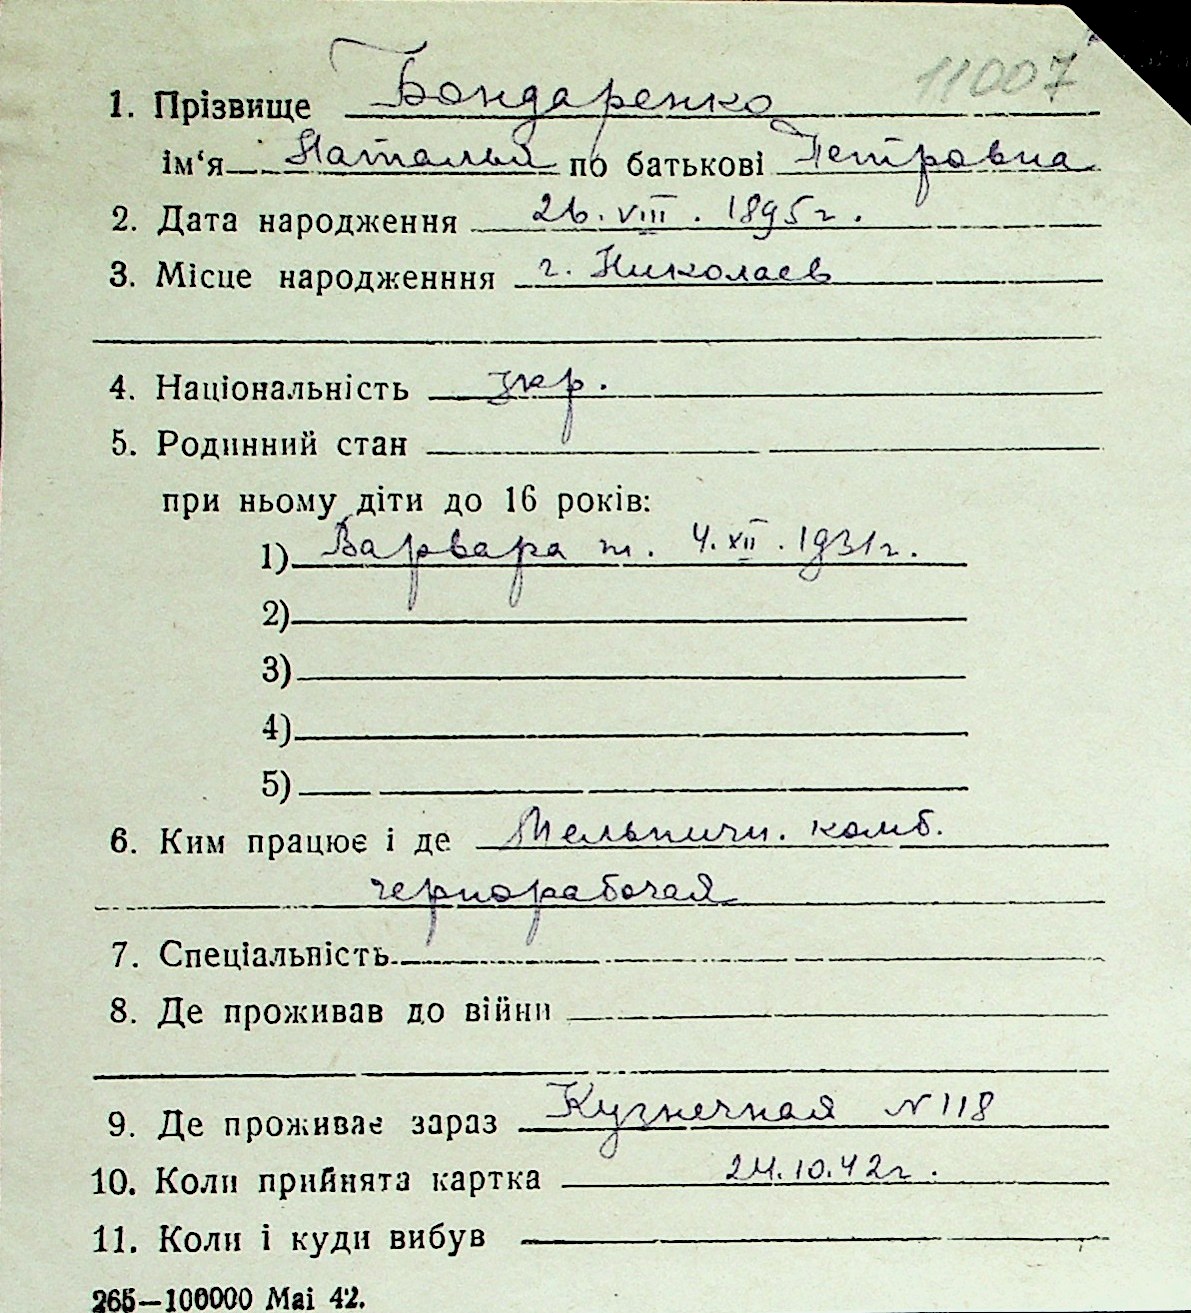 11007
1. Прізвище Бондаренко
ім‘я Наталья по батькові Петровна
2. Дата народження 26. VIII. 1895 г.
3. Місце народженння г. Николаев
4. Національність укр.
5. Родинний стан
при ньому діти до 16 років:
1) Варвара т. 4. XII. 1931 г.
2)
3)
4)
5)
6. Ким працює і де Мельничн. комб.
чернорабочая
7. Спеціальність
8. Де проживав до війни
9. Де проживає зараз Кузнечная № 118
10. Коли прийнята картка 24.10.42 г.
11. Коли і куди вибув
265—100000 Mai 42.